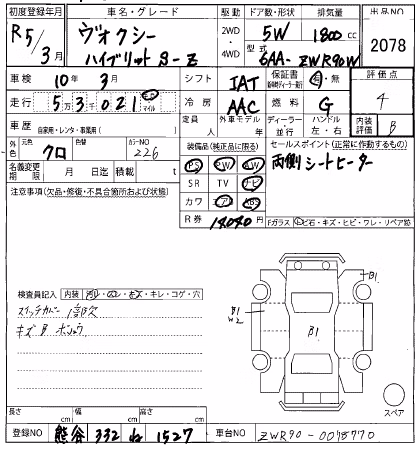 初度登録年月 車名・グレード 駆動 ドア数・形状 排気量 出品NO
R5/3月 ヴォクシー 2WD 5W 1800cc 2078
ハイブリット S-Z 4WD 型式 6AA-ZWR90W
車検 10年 3月 シフト IAT 保証書 有・無 評価点
走行 53021 マイル 冷房 AAC 燃料 G 4
車歴 自家用・レンタ・事業用( ) 定員 人 外車モデル 年 ディーラー 並行 ハンドル 左・右 内装評価 B
外色 元色 クロ 色替 カラーNO 226 装備品(純正品に限る) セールスポイント(正常に作動するもの)
PS PW AW 両側 シートヒーター
名義変更期限 月 日迄 積載 t SR TV ナビ
注意事項(欠品・修復・不具合箇所および状態) カワ エアB ABS
R券 14040円 Fガラス 飛石・キズ・ヒビ・ワレ・リペア跡
検査員記入 内装 キレ・コゲ・穴
スイッチカバー 一部欠
キズB
B1
B1
W2
B1
スペア
長さ cm 幅 cm 高さ cm
登録NO 熊谷 332 ね 1527 車台NO ZWR90-0075770